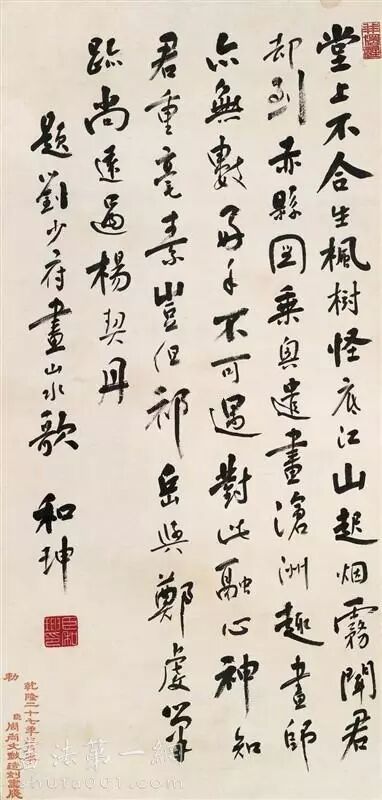 堂上不合生楓樹怪底江山起烟霧聞君
却到赤縣圖乘興遣畫滄洲趣畫師
亦無數好手不可遇對此融心神知
君重毫素豈但祁岳與鄭虔筆
跡尚遙過楊契丹
題劉少府畫山水歌 和珅
勅
乾隆三十七年
臣周尚文
書法第一網
shufa001.com